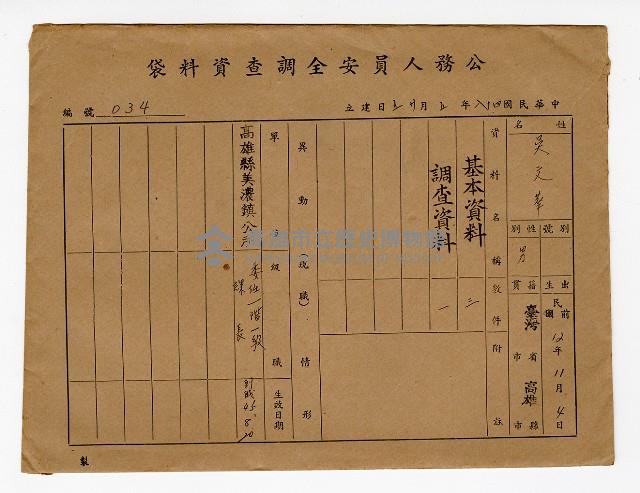 公務人員安全調查資料袋
編號 034
中華民國 年 月 日建立
姓名
吳文華
別號
性別
男
出生
民前國12年11月4日
籍貫
臺灣省市
高雄縣市
資料名稱
基本資料
調查資料
件數
三
一
附註
異動(現職)情形
單位
級職
生效日期
高雄縣美濃鎮公所
委任一階一級
課長
到職45.8.20
高雄市立歷史博物館
製